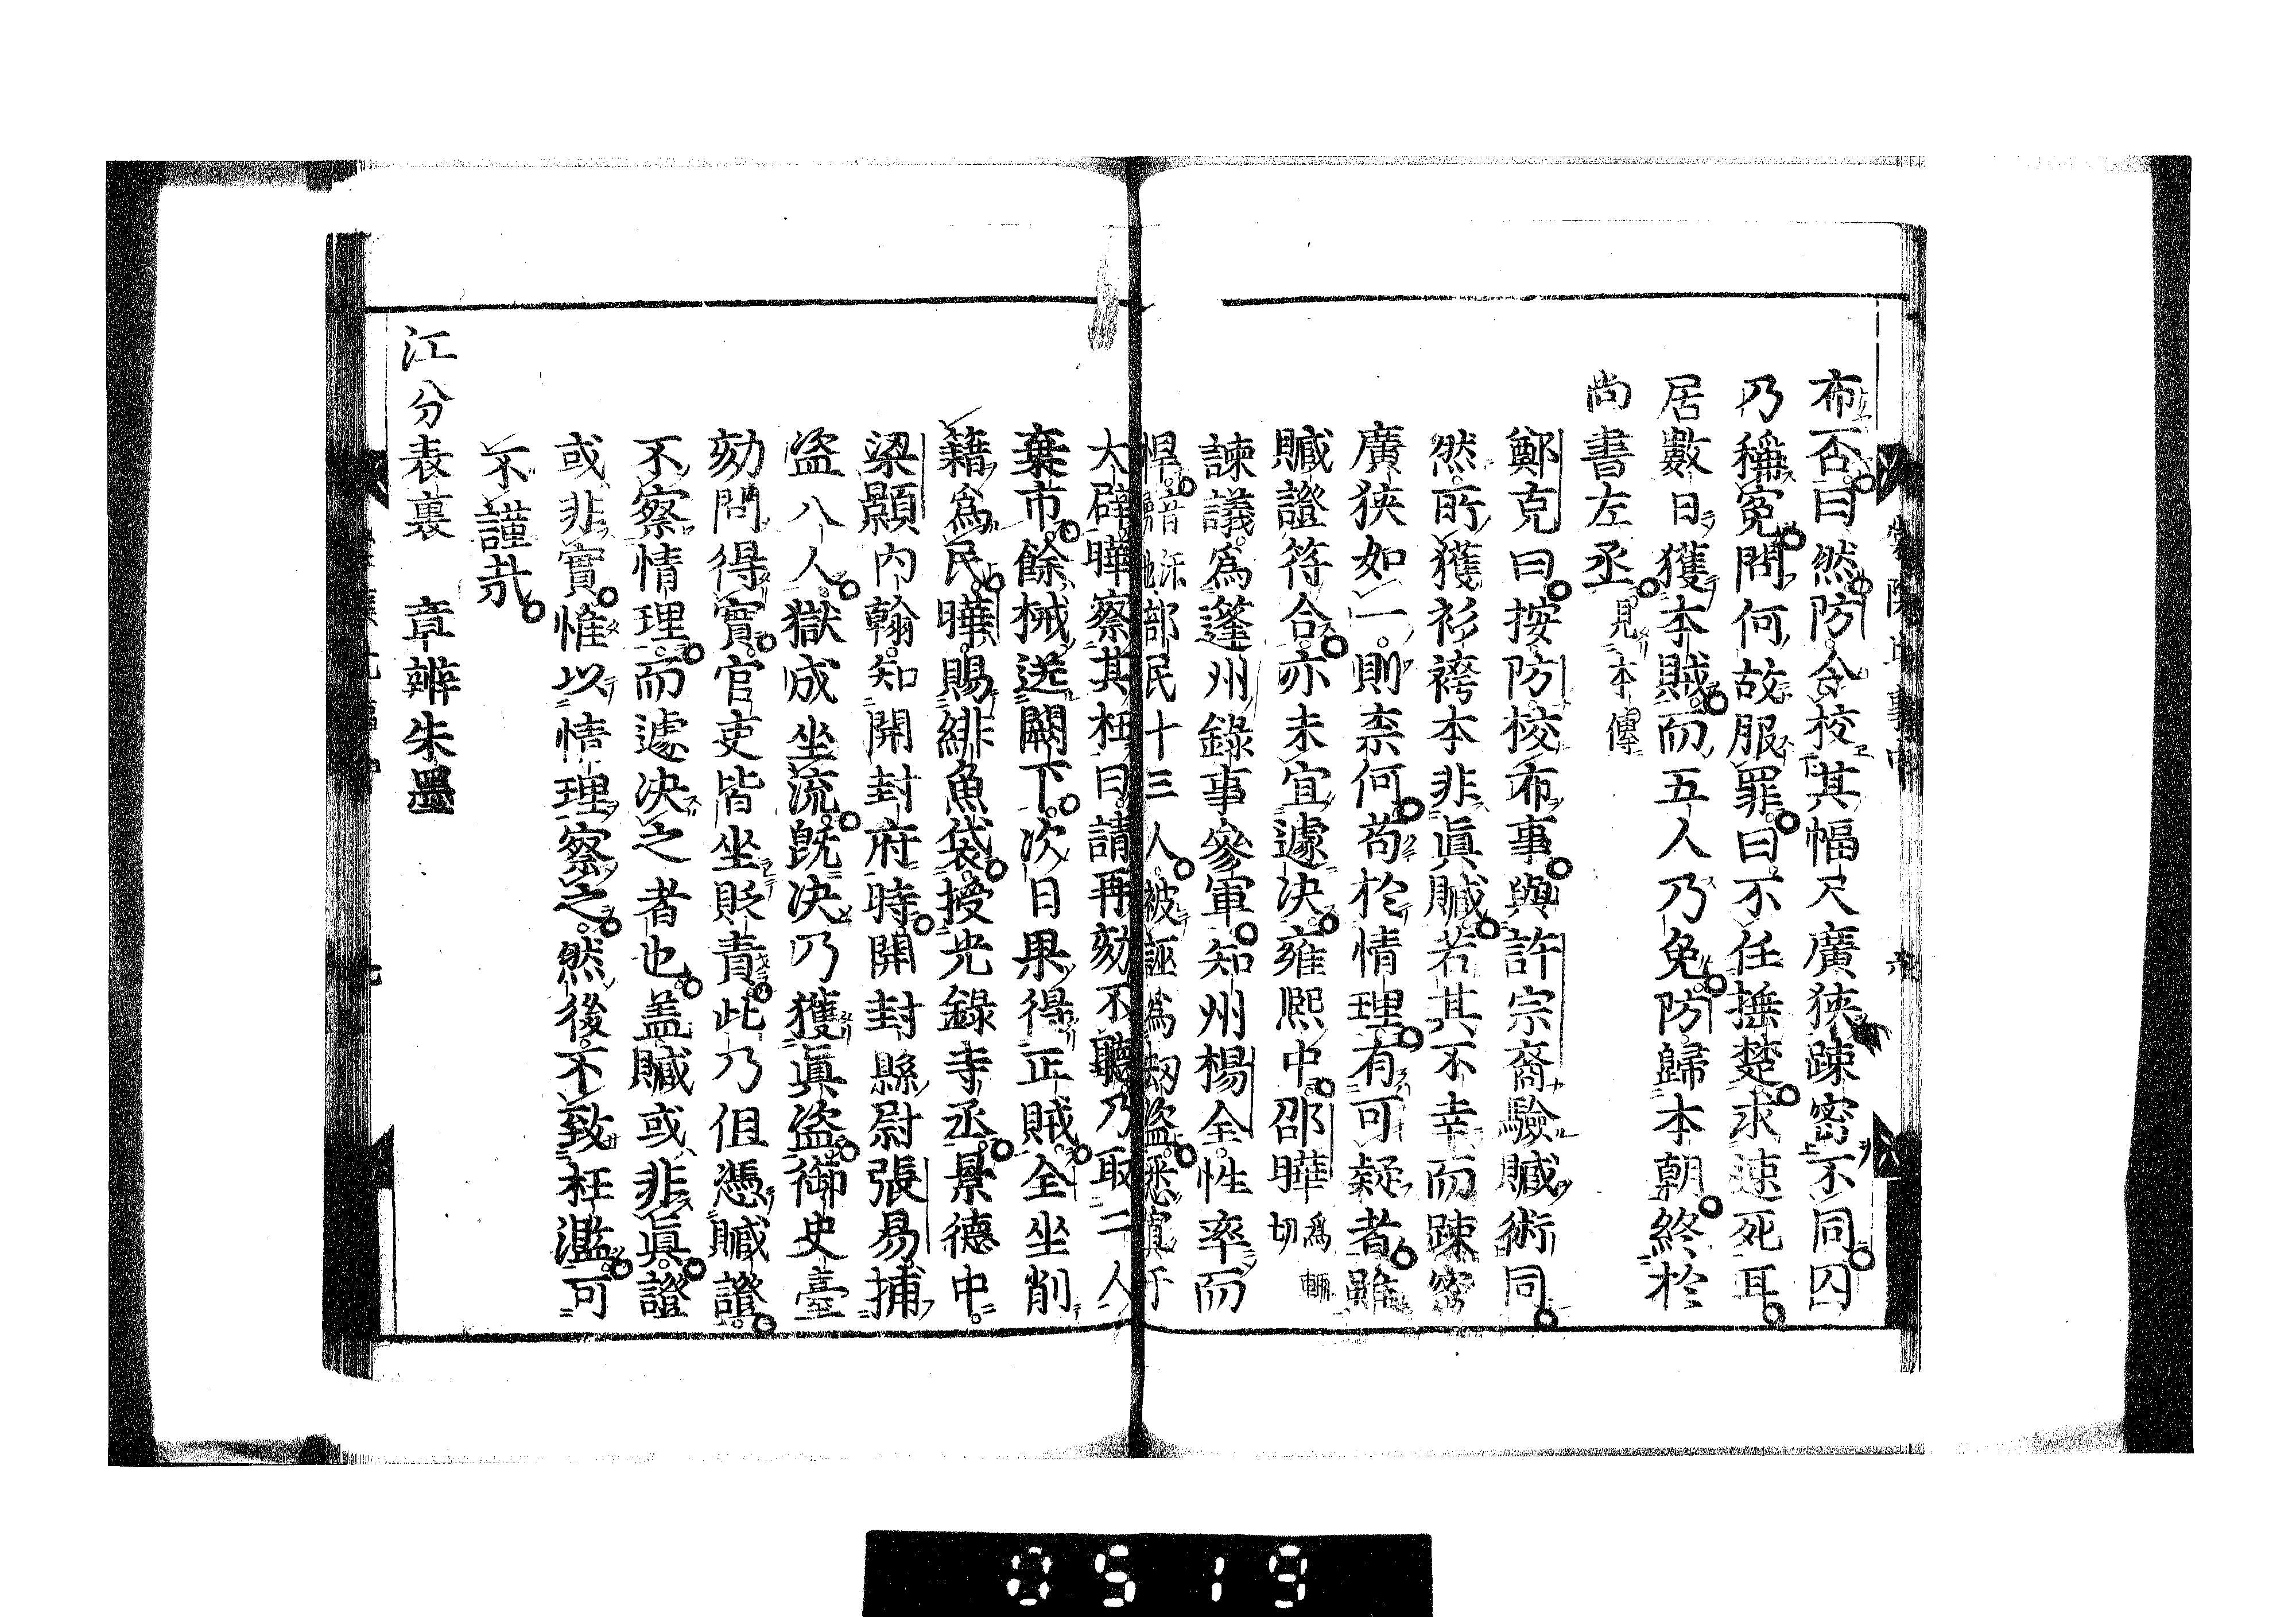 布否曰然防令校其幅尺廣狹踈密不同囚
乃稱冤問何故服罪曰不任捶楚求速死耳
居數日獲本賊而五人乃免防歸本朝終於
尚書左丞見本傳
鄭克曰按防校布事與許宗裔驗贓術同
然所獲衫袴本非眞贓若其不幸而踈密
廣狹如一則柰何苟於情理有可疑者雖
贓證符合亦未宜遽決雍熙中邵曄爲輒切
諫議爲蓬州錄事參軍知州楊全性率而
悍部民十三人被誣爲刼盜悉寘于
大辟曄察其枉曰請再劾不聽乃取二人
棄市餘械送闕下次日果得正賊全坐削
籍爲民曄賜緋魚袋授光錄寺丞景德中
梁顥內翰知開封府時開封縣尉張易捕
盜八人獄成坐流旣決乃獲眞盜御史臺
劾問得實官吏皆坐貶責此乃伹憑贓證
不察情理而遽決之者也盖贓或非眞證
或非實惟以情理察之然後不致枉濫可
不謹哉
江分表裏　章辨朱墨
0519